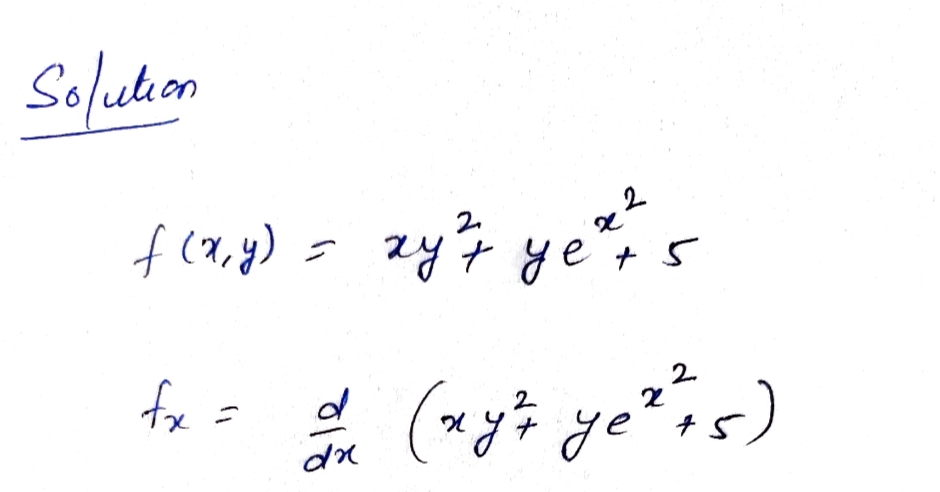 Solution
f(x,y) = xy² + ye^x² + 5
fx = d/dx (xy² + ye^x² + 5)